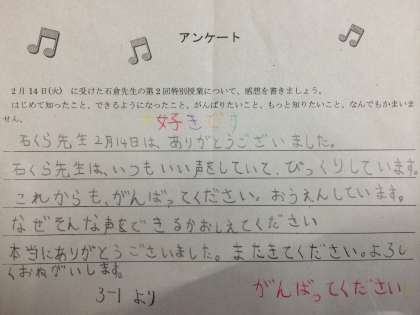 アンケート
2月14日(火) に受けた石倉先生の第2回特別授業について、感想を書きましょう。
はじめて知ったこと、できるようになったこと、がんばりたいこと、もっと知りたいこと、なんでもかまいま
せん。
好きです
石くら先生2月14日は、ありがとうございました。
石くら先生は、いつもいい声をしていて、びっくりしています。
これからも、がんばってください。おうえんしています。
なぜそんな声をできるかおしえてください
本当にありがとうございました。またきてください。よろし
くおねがいします。
3-1 より
がんばってください